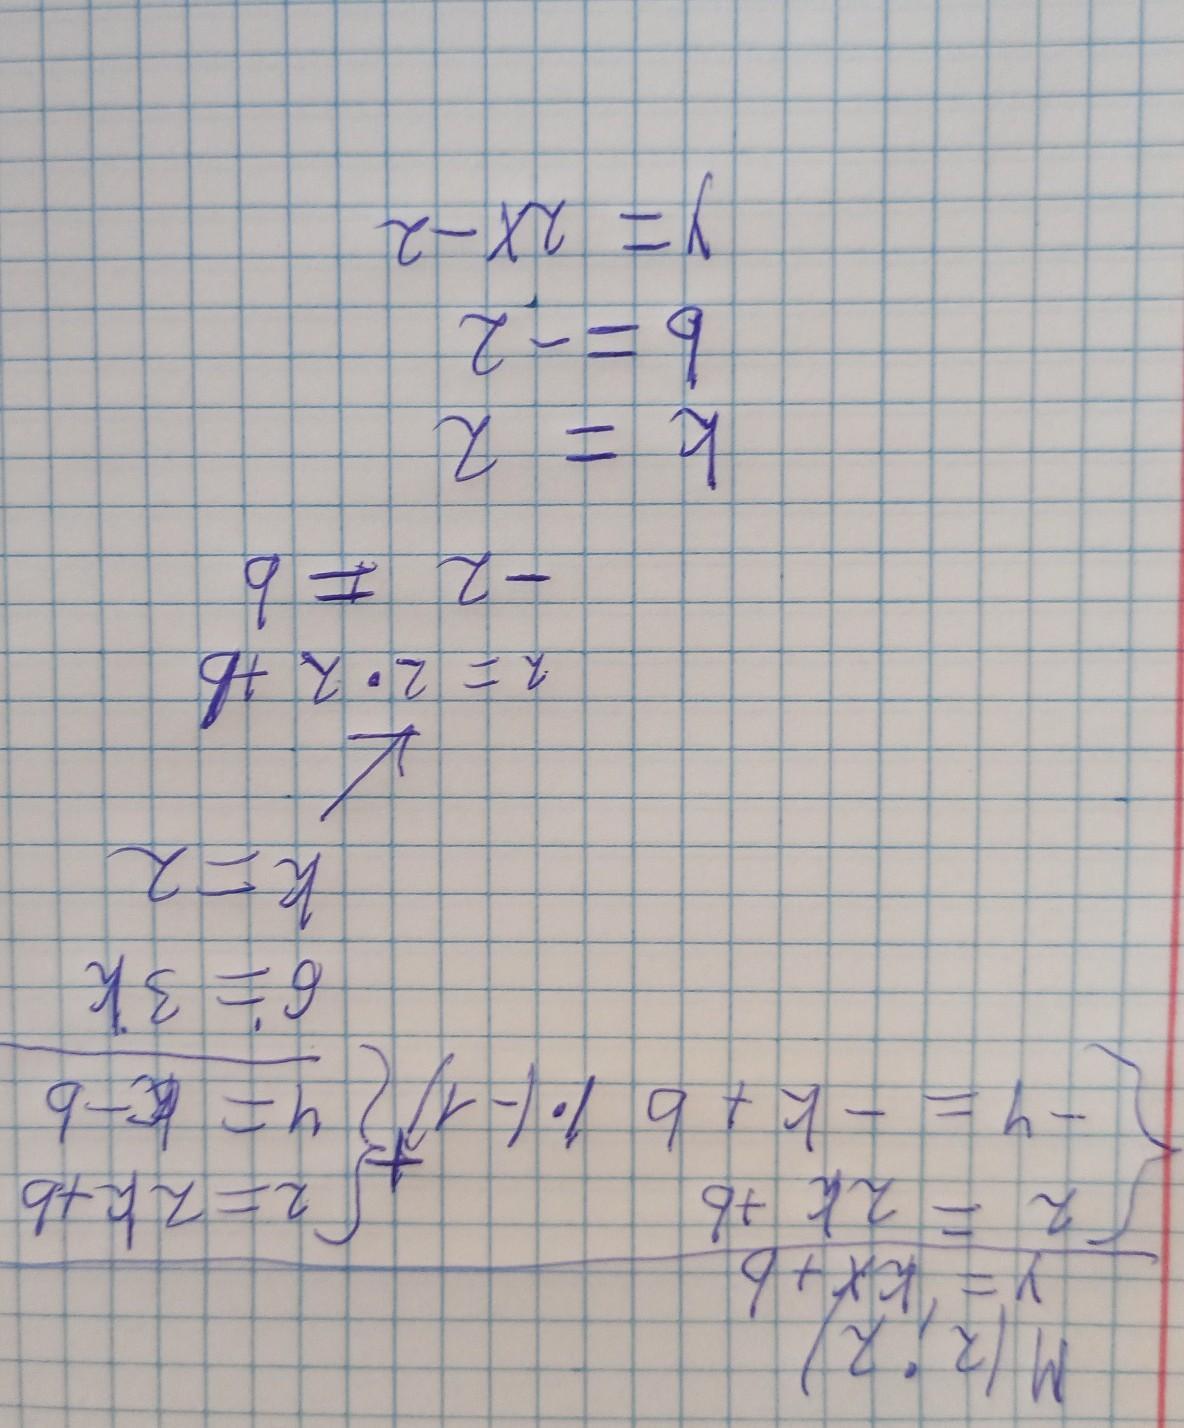 M(2;2)
y = kx + b
2 = 2k + b
-4 = -k + b |·(-1)
+
2 = 2k + b
4 = k - b
6 = 3k
k = 2
2 = 2·2 + b
-2 = b
k = 2
b = -2
y = 2x - 2